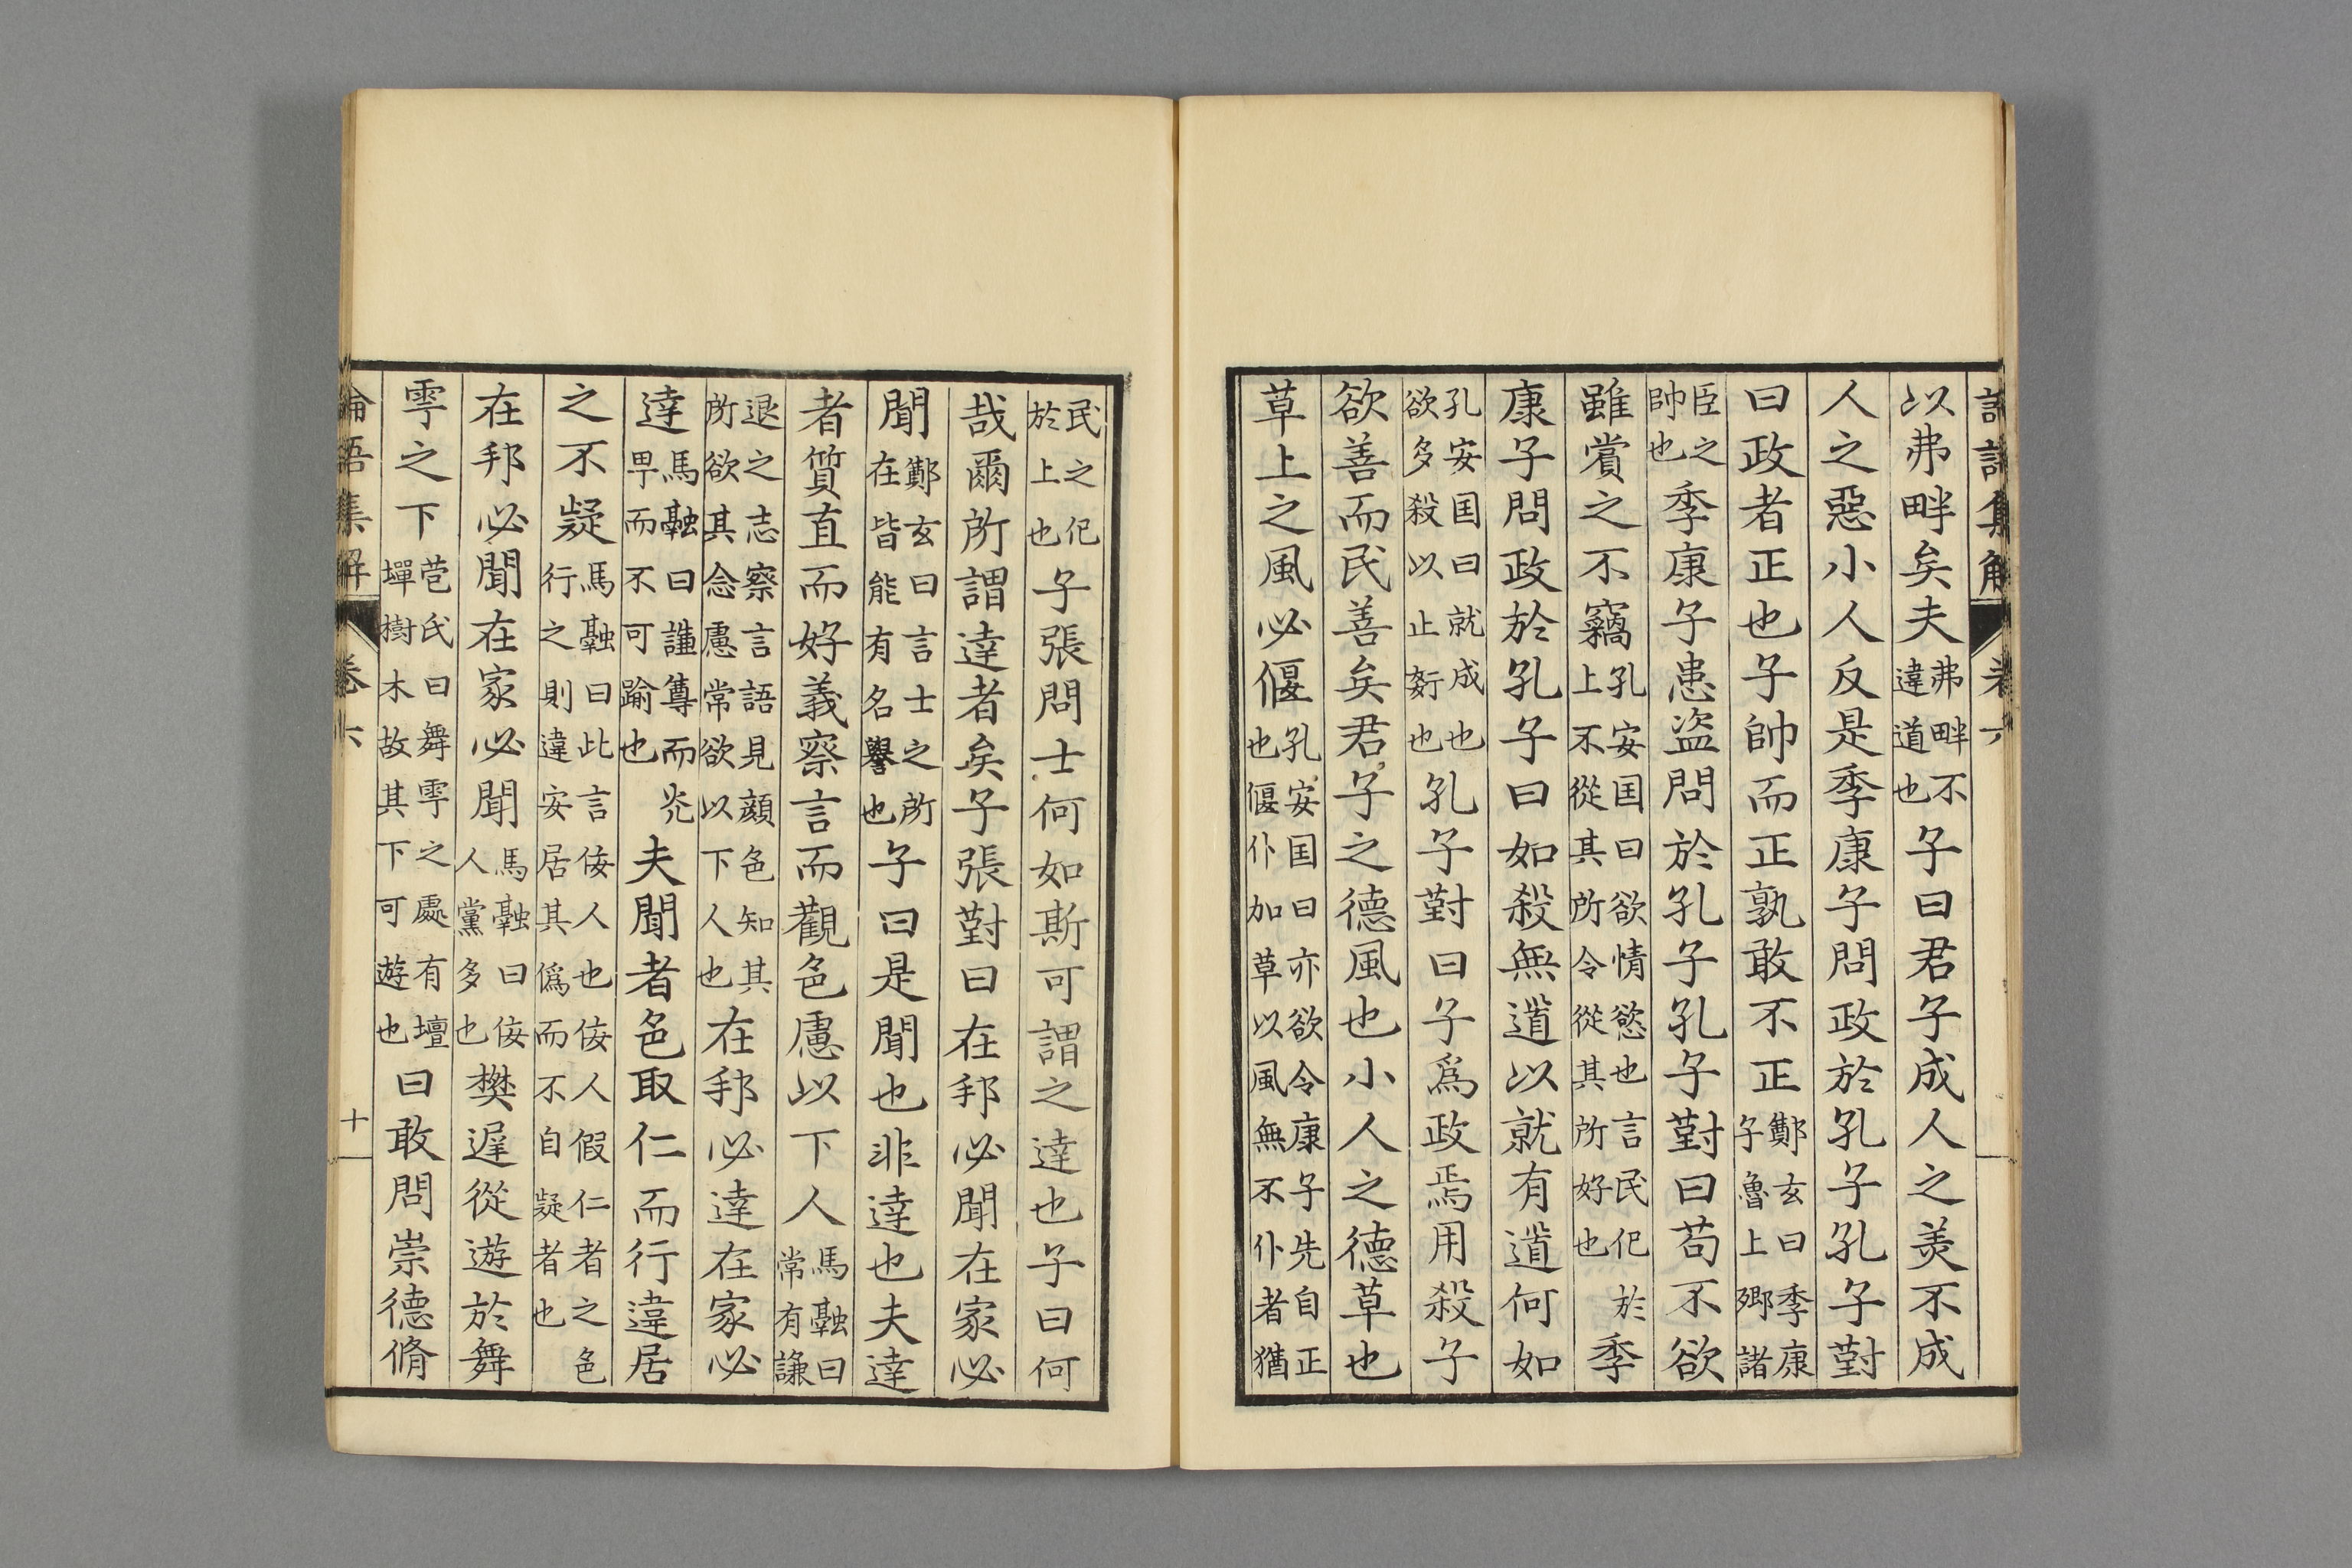 以弗畔矣夫弗畔不違道也子曰君子成人之美不成
人之惡小人反是季康子問政於孔子孔子對
曰政者正也子帥而正孰敢不正鄭玄曰季康子魯上卿諸
臣之帥也季康子患盗問於孔子孔子對曰苟不欲
雖賞之不竊孔安囯曰欲情慾也言民化於上不從其所令從其所好也季
康子問政於孔子曰如殺無道以就有道何如
孔安囯曰就成也欲多殺以止姧也孔子對曰子爲政焉用殺子
欲善而民善矣君子之德風也小人之德草也
草上之風必偃孔安囯曰亦欲令康子先自正也偃仆加草以風無不仆者猶
民之化於上也子張問士何如斯可謂之達也子曰何
哉爾所謂達者矣子張對曰在邦必聞在家必
聞鄭玄曰言士之所在皆能有名譽也子曰是聞也非達也夫達
者質直而好義察言而觀色慮以下人馬融曰常有謙
退之志察言語見顔色知其所欲其念慮常欲以下人也在邦必達在家必
達馬融曰謙尊而光卑而不可踰也夫聞者色取仁而行違居
之不疑馬融曰此言佞人也佞人假仁者之色行之則違安居其僞而不自疑者也
在邦必聞在家必聞馬融曰佞人黨多也樊遲從遊於舞
雩之下苞氏曰舞雩之處有壇墠樹木故其下可遊也曰敢問崇德脩
論語集解 卷六 十一